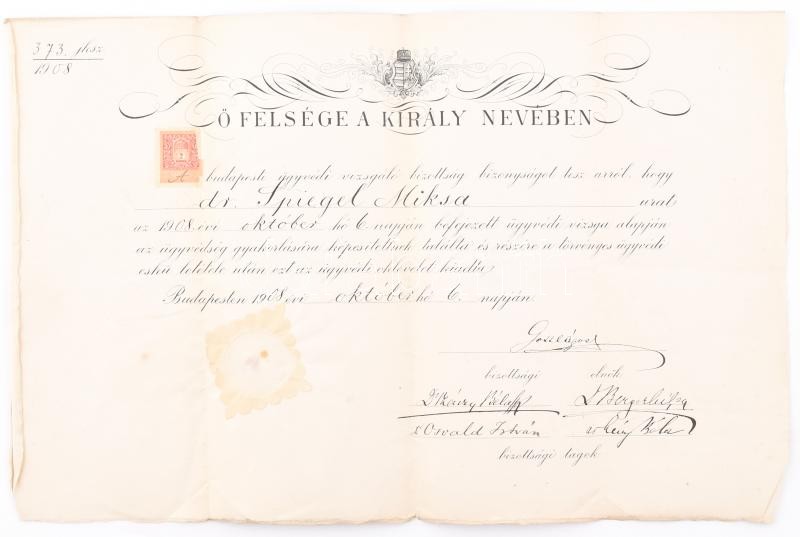 373. jksz
1908
Ő FELSÉGE A KIRÁLY NEVÉBEN
A budapesti ügyvédi vizsgáló bizottság bizonyságot tesz arról, hogy
dr. Spiegel Miksa urat
az 1908 évi október hó 6. napján befejezett ügyvédi vizsga alapján
az ügyvédség gyakorlására képesítettnek találta és részére a törvényes ügyvédi
eskü letétele után ezt az ügyvédi oklevelet kiadta
Budapesten 1908 évi október hó 6. napján.
bizottsági elnök
Dr Béla
Dr
Dr Osvald István Dr Béla
bizottsági tagok